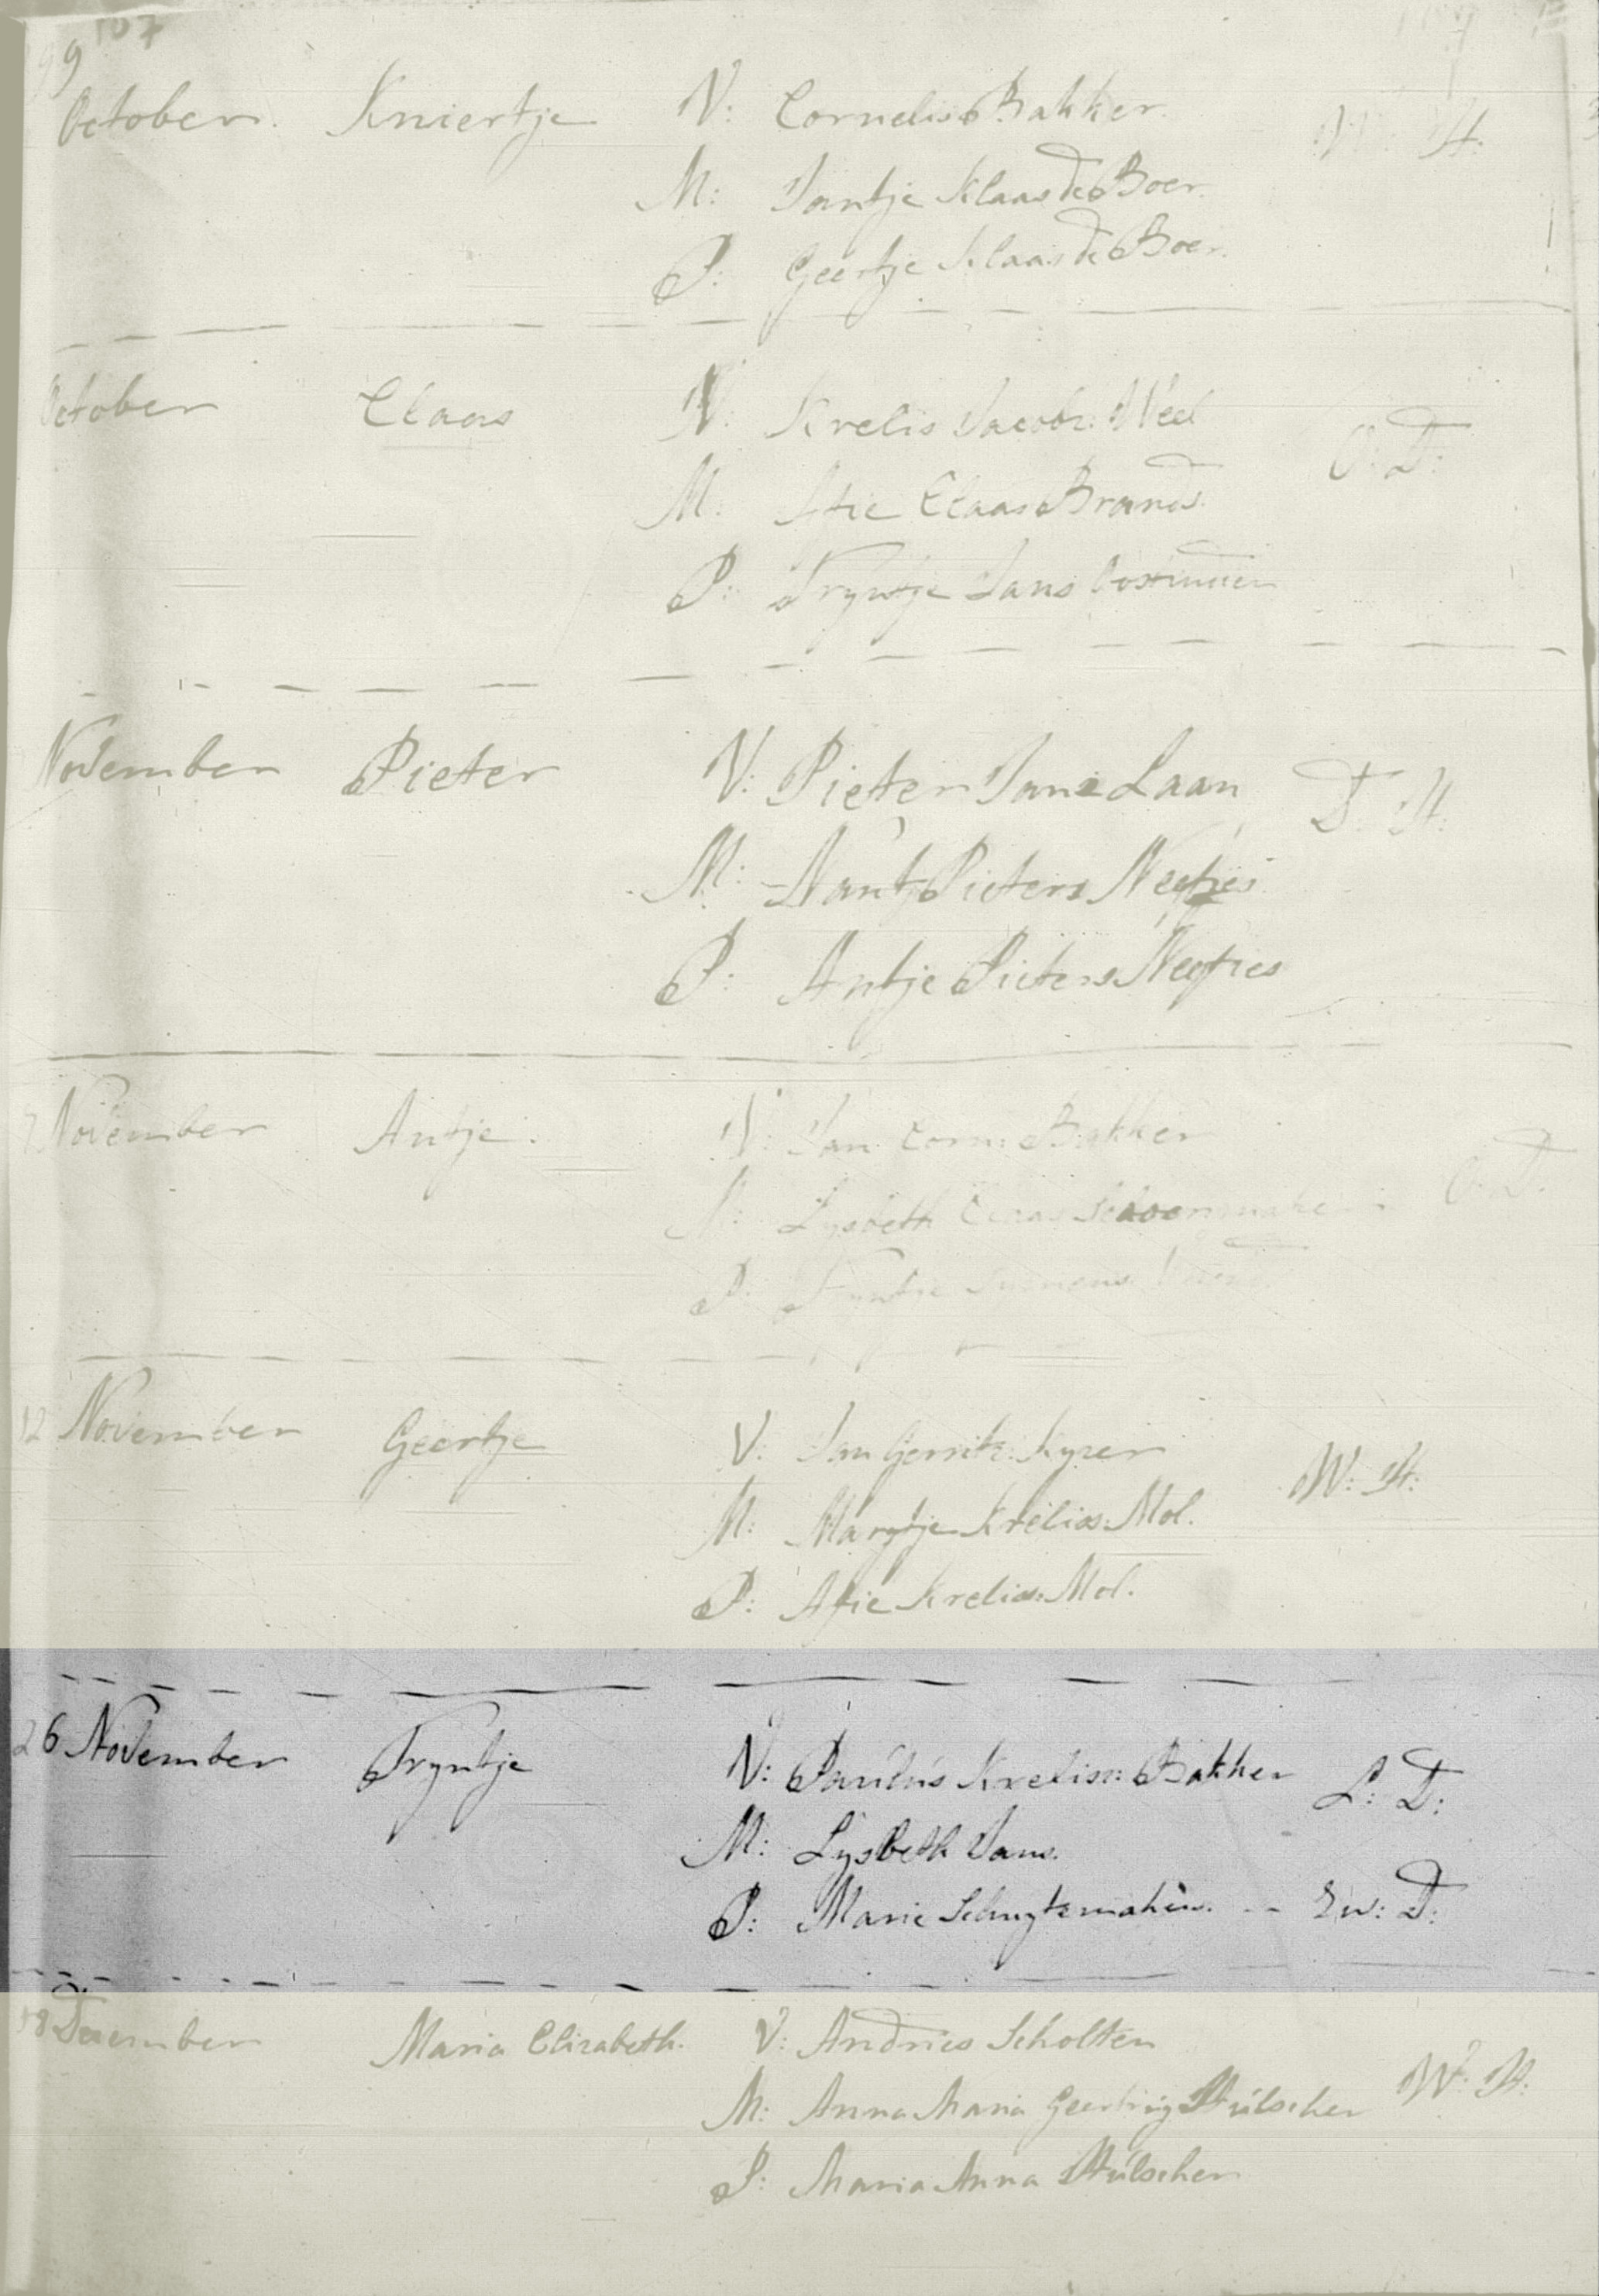 9 107
October. Kniertje V: Cornelis Bakker. W: H:
M: Jantje Klaas de Boer.
P: Geertje Klaas de Boer.
October Claas V: Krelis Jacobz: Weel O: D:
M: Afie Claas Brands.
P: Tryntje Jans
November Pieter V: Pieter Janz Laan D: H:
M: Nantj Pieters Neefjes
P: Antje Pieters Neefjes
November Antje. V: Jan Corn: Bakker O: D:
M: Lysbeth Claas Schoenmakers
P: Tryntje Symons
12 November Geertje V: Jan Gerritz: Kyzer W: H:
M: Marytje Krelis: Mol.
P: Afie Krelis: Mol.
26 November Tryntje V: Paulus Krelisz: Bakker L: D:
M: Lysbeth Jans.
P: Marie Schuytemakers. -- Zw: D:
18 December Maria Elizabeth. V: Andries Scholten W: H:
M: Anna Maria Geertruy Hülscher
P: Maria Anna Hülscher